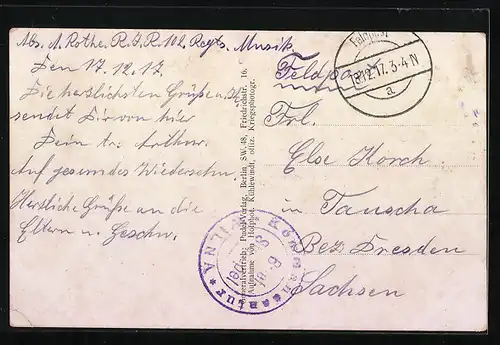 Abs. A. Rothe. R.I.R. 102. Regts. Musik.
Den 17.12.17.
Die herzlichsten Grüße
sendet Dir von hier
Dein tr. Arthur.
Auf gesundes Wiedersehn.
Herzliche Grüße an die
Eltern u. Geschw.
Generalvertrieb: Verlag, Berlin SW.48, Friedrichstr. 16.
Aufnahme von Hofphot. Kühlewindt, offiz. Kriegsphotogr.
Feldpost
Feldpost
18.12.17. 3-4 N
a
Frl.
Else Korch
in Tauscha
Bez. Dresden
Sachsen
Kommandantur * WILNA *